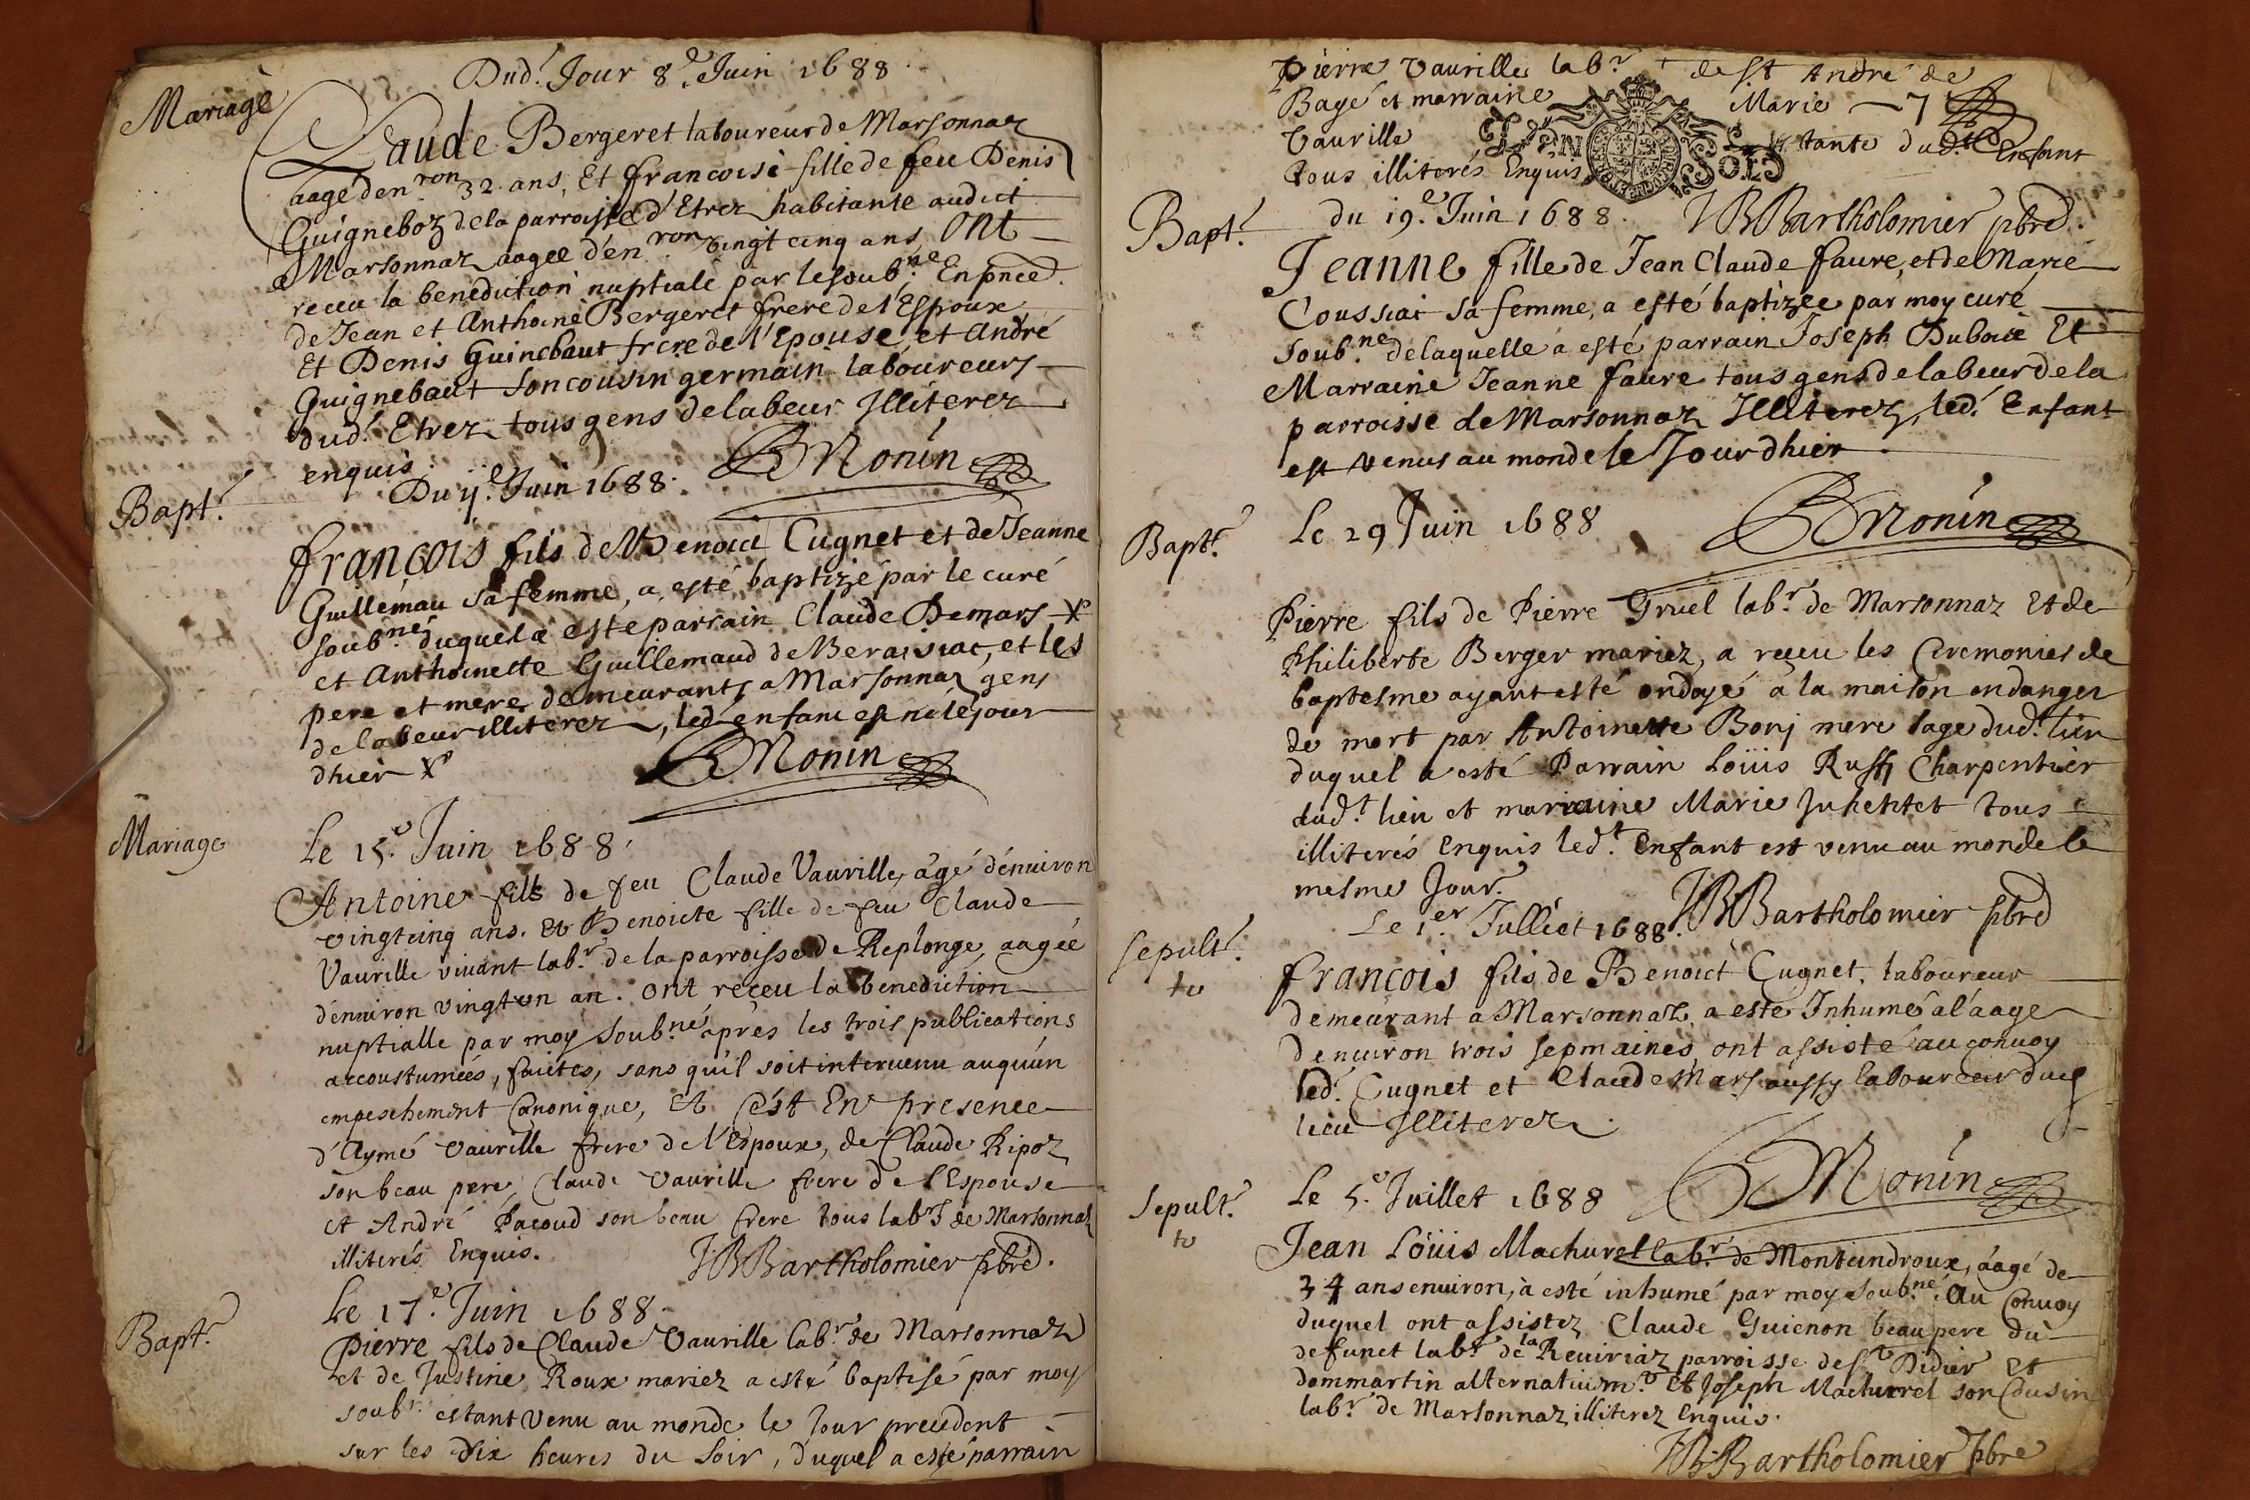 Dud.t Jour 8.e Juin 1688.
Mariage
Claude Bergeret laboureur de Marsonnaz
aagé d'en.ron 32 ans, Et francoise fille de feu Denis
Guigneboz de la parroisse d'Etrez habitante audict
Marsonnaz aagee d'en.ron vingt cinq ans, ont
receu la benediction nuptiale par le soub.ne En pnce
de Jean et Anthoine Bergeret frere de l'Espoux,
Et Denis Guinebaut frere de l'Epouse, et André
Guignebaut son cousin germain laboureurs
dud.t Etrez tous gens de labeur Illiterez
enquis. BMonin
Du ij.e Juin 1688.
Bapt.
françois fils de Benoict Cugnet et de Jeanne
Guillemau sa femme, a esté baptizé par le curé
soub.né duquel a esté parrain Claude Demars X
et Anthoinette Guillemaud de Beraisiat, et les
pere et mere demeurants a Marsonnaz gens
de labeur illiterez, led. enfant est né le jour
dhier X BMonin
Mariage
Le 15.e Juin 1688.
Antoine fils de feu Claude Vaurille, agé d'environ
vingt cinq ans. Et Benoicte fille de feu Claude
Vaurille vivant lab.r de la parroisse de Replonge, aagée
d'environ vingt un an. ont receu la benediction
nuptialle par moy soub.né apres les trois publications
accoustumées, faictes, sans qu'il soit intervenu auqu'un
empeschement Canonique, Et C'est En presence
d'Aymé Vaurille frere de l'Espoux, de Claude Ripoz
son beau pere, Claude Vaurille frere de l'Espouse
et André Pacoud son beau frere tous lab.rs de Marsonnaz
illiterés Enquis. JBBartholomier pbre.
Le 17.e Juin 1688.
Bapt.
Pierre fils de Claude Vaurille lab.r de Marsonnaz
et de Justine Roux mariez a esté baptisé par moy
soub.r estant venu au monde le Jour precedent
sur les dix heures du soir, duquel a esté parrain
Pierre Vaurille lab.r de St André de
Bagé et marraine Marie
Vaurille tante dud.t Enfant
DEN SOLS
tous illiterés Enquis
Bapt.
du 19.e Juin 1688. JBBartholomier pbre.
Jeanne fille de Jean Claude faure, et de Marie
Coussiat sa femme, a esté baptizee par moy curé
soub.ne de laquelle a esté parrain Joseph Duboie Et
Marraine Jeanne faure tous gens de labeur de la
parroisse de Marsonnaz Illiterez, led.t Enfant
est venus au monde le Jour dhier.
Bapt.
Le 29 Juin 1688 BMonin
Pierre fils de Pierre Gruel lab.r de Marsonnaz Et de
Philiberte Berger mariez, a receu les Ceremonies de
baptesme ayant esté ondoyé à la maison en danger
de mort par Antoinette Borj mere sage dud.t lieu
duquel a esté Parrain Loüis Charpentier
dud.t lieu et marraine Marie tous
illiterés Enquis led.t Enfant est venu au monde le
mesme Jour. JBBartholomier pbre
Le 1.er Julliet 1688.
Sepult.
to
francois fils de Benoict Cugnet, laboureur
demeurant a Marsonnaz, a este Inhumé al'aage
d'environ trois sepmaines, ont assisté au convoy
led. Cugnet et Claude Mars aussy laboureur dud.
lieu Illiterez.
Sepult.
to
Le 5.e Juillet 1688 BMonin
Jean Loüis Machurel lab.r de Montandroux, aagé de
34 ans environ, à esté inhumé par moy soub.né. Au Convoy
duquel ont assistez Claude Guienon beaupere du
defunct lab.r de la Reuiriaz parroisse de St Didier Et
dommartin alternativem.t Et Joseph Machurel son Cousin
lab.r de Marsonnaz illiterez Enquis.
JBBartholomier pbre